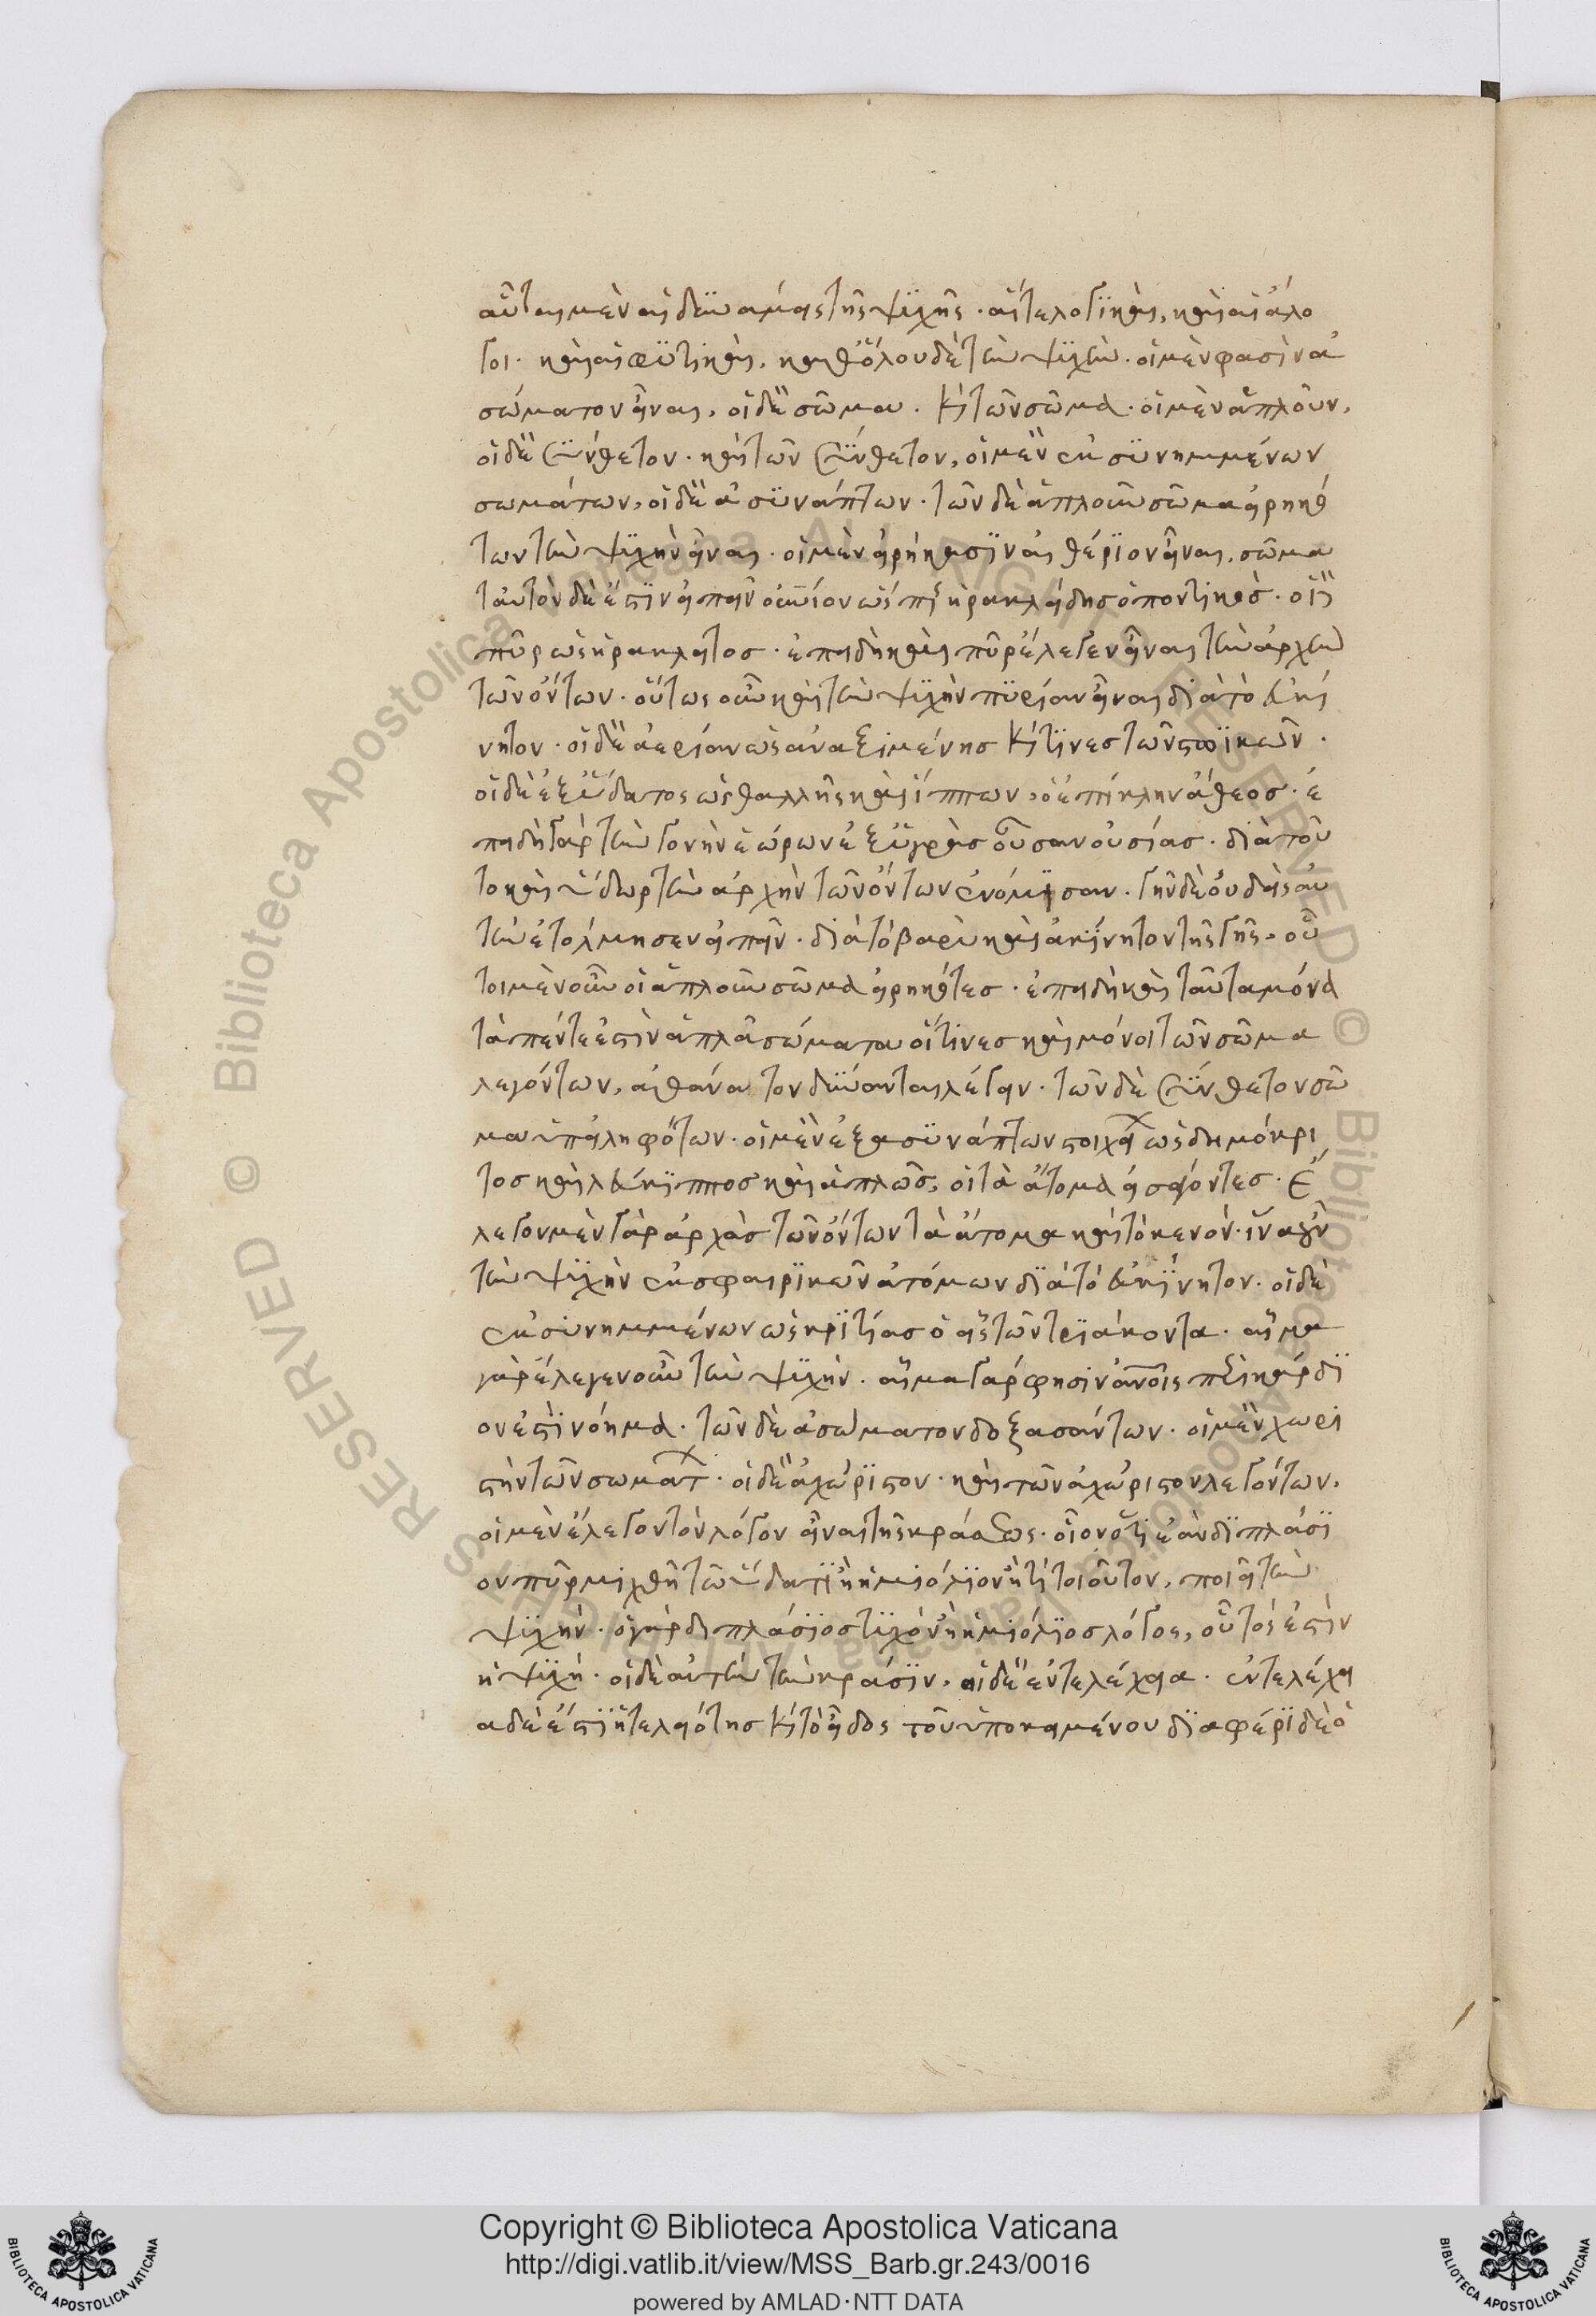 αὗται μὲν αἱ δυνάμεις τῆς ψυχῆς · αἵ τε λογικαὶ, καὶ αἱ άλο
γοι · καὶ αἱ φϋτικαὶ, καθόλου δὲ τὴν ψϋχὴν · οἱ μὲν φασὶν ἀ
σώματον εἶναι, οἱ δὲ σῶμα · καὶ τῶν σῶμα · οἱ μὲν ἁπλοῦν,
οἱ δὲ σϋνθετον · καὶ τῶν σϋνθετον, οἱ μὲν ἐκ σϋνημμένων
σωμάτων, οἱ δὲ ἀσϋνάπτων · τῶν δὲ ἁπλοῦν σῶμα εἰρηκό
των τὴν ψϋχὴν εἶναι · οἱ μὲν εἰρήκασϊν αἰθέριον εἶναι, σῶμα
ταὐτὸν δέ ἐστϊν εἰπεῖν οὐνίον ὥσπερ ἡρακλείδησ ὁ ποντικόσ · οἱ δὲ
πῦρ ὡς ἡράκλειτοσ · ἐπειδὴ καὶ πῦρ ἔλεγεν εἶναι τὴν ἀρχὴν
τῶν ὄντων · οὕτως οὖν καὶ τὴν ψϋχὴν πϋρίαν εἶναι διὰ τὸ εὐκί
νητον · οἱ δὲ ἀερίαν ὡς ἀναξιμένησ καί τϊνεσ τῶν στωϊκῶν ·
οἱ δὲ ἐξ ὕδατος ὡς θαλλῆς καὶ ἵππων, ὁ ἐπίκλην ἄθεοσ · ἐ
πειδὴ γὰρ τὴν γονὴν ἑώρων ἐξ ὑγρᾶσ οὖσαν οὐσίασ · διὰ τοῦ
το καὶ ὕδωρ τὴν ἀρχὴν τῶν ὄντων ἐνόμισαν · γῆν δὲ οὐδεὶς αὐ
τὴν ἐτόλμησεν εἰπεῖν · διὰ τὸ βαρὺ καὶ ἀκίνητον τῆς γῆς · οὗ
τοι μὲν οὖν οἱ ἁπλοῦν σῶμα εἰρηκότεσ · ἐπειδὴ καὶ ταῦτα μόνα
τὰ πέντε ἐστὶν ἁπλᾶ σώματα οἵτινεσ καὶ μόνοι τῶν σῶμα
λεγόντων, ἀθάνατον δϋνανται λέγειν · τῶν δὲ σϋνθετον σῶ
μα ὑπειληφότων · οἱ μὲν ἐξ ἀσϋνάπτων στοιχεί ὡς δημόκρι
τοσ καὶ λεύκϊπποσ καὶ ἁπλῶς, οἱ τὰ ἄτομα εἰσάγοντεσ · ἔ
λεγον μὲν γὰρ ἀρχὰσ τῶν ὄντων τὰ ἄτομα καὶ τὸ κενόν · εἶναι οὖν
τὴν ψϋχὴν ἐκ σφαιρϊκῶν ἀτόμων διὰ τὸ εὐκϊνητον · οἱ δὲ
ἐκ συνημμένων ὡς κρϊτίασ ὁ εἷς τῶν τρϊάκοντα · αἷμα
γὰρ ἔλεγεν οὖν τὴν ψϋχὴν · αἷμα γάρ φησιν ἀνοῖς περὶ κάρδϊ
ον ἐστὶ νόημα · τῶν δὲ ἀσώματον δοξασάντων · οἱ μὲν χωρι
στὴν τῶν σωμάτ · οἱ δὲ ἀχώρϊστον · καὶ τῶν ἀχώριστον λεγόντων,
οἱ μὲν ἔλεγον τὸν λόγον εἶναι τῆς κράσεως · οἷον ὅτι ἐὰν δϊπλάσϊ
ον πῦρ μιχθῆ τῶ ὕδατϊ ἢ ἡμιόλϊον ἤ τι τοιοῦτον, ποιεῖ τὴν
ψϋχήν · ὁ γὰρ διπλάσϊος τϋχὸν ἢ ἡμιόλϊοσ λόγος, οὗτός ἐστὶν
ἡ ψϋχή · οἱ δὲ αὐτὴν τὴν κράσϊν, οἱ δὲ ἐντελέχεια · ἐντελέχει
α δέ ἐστϊ ἡ τελειότησ καὶ τὸ εἶδος τοῦ ὑποκειμένου δϊαφέρϊ δὲ ὁ
Copyright © Biblioteca Apostolica Vaticana
http://digi.vatlib.it/view/MSS_Barb.gr.243/0016
powered by AMLAD·NTT DATA